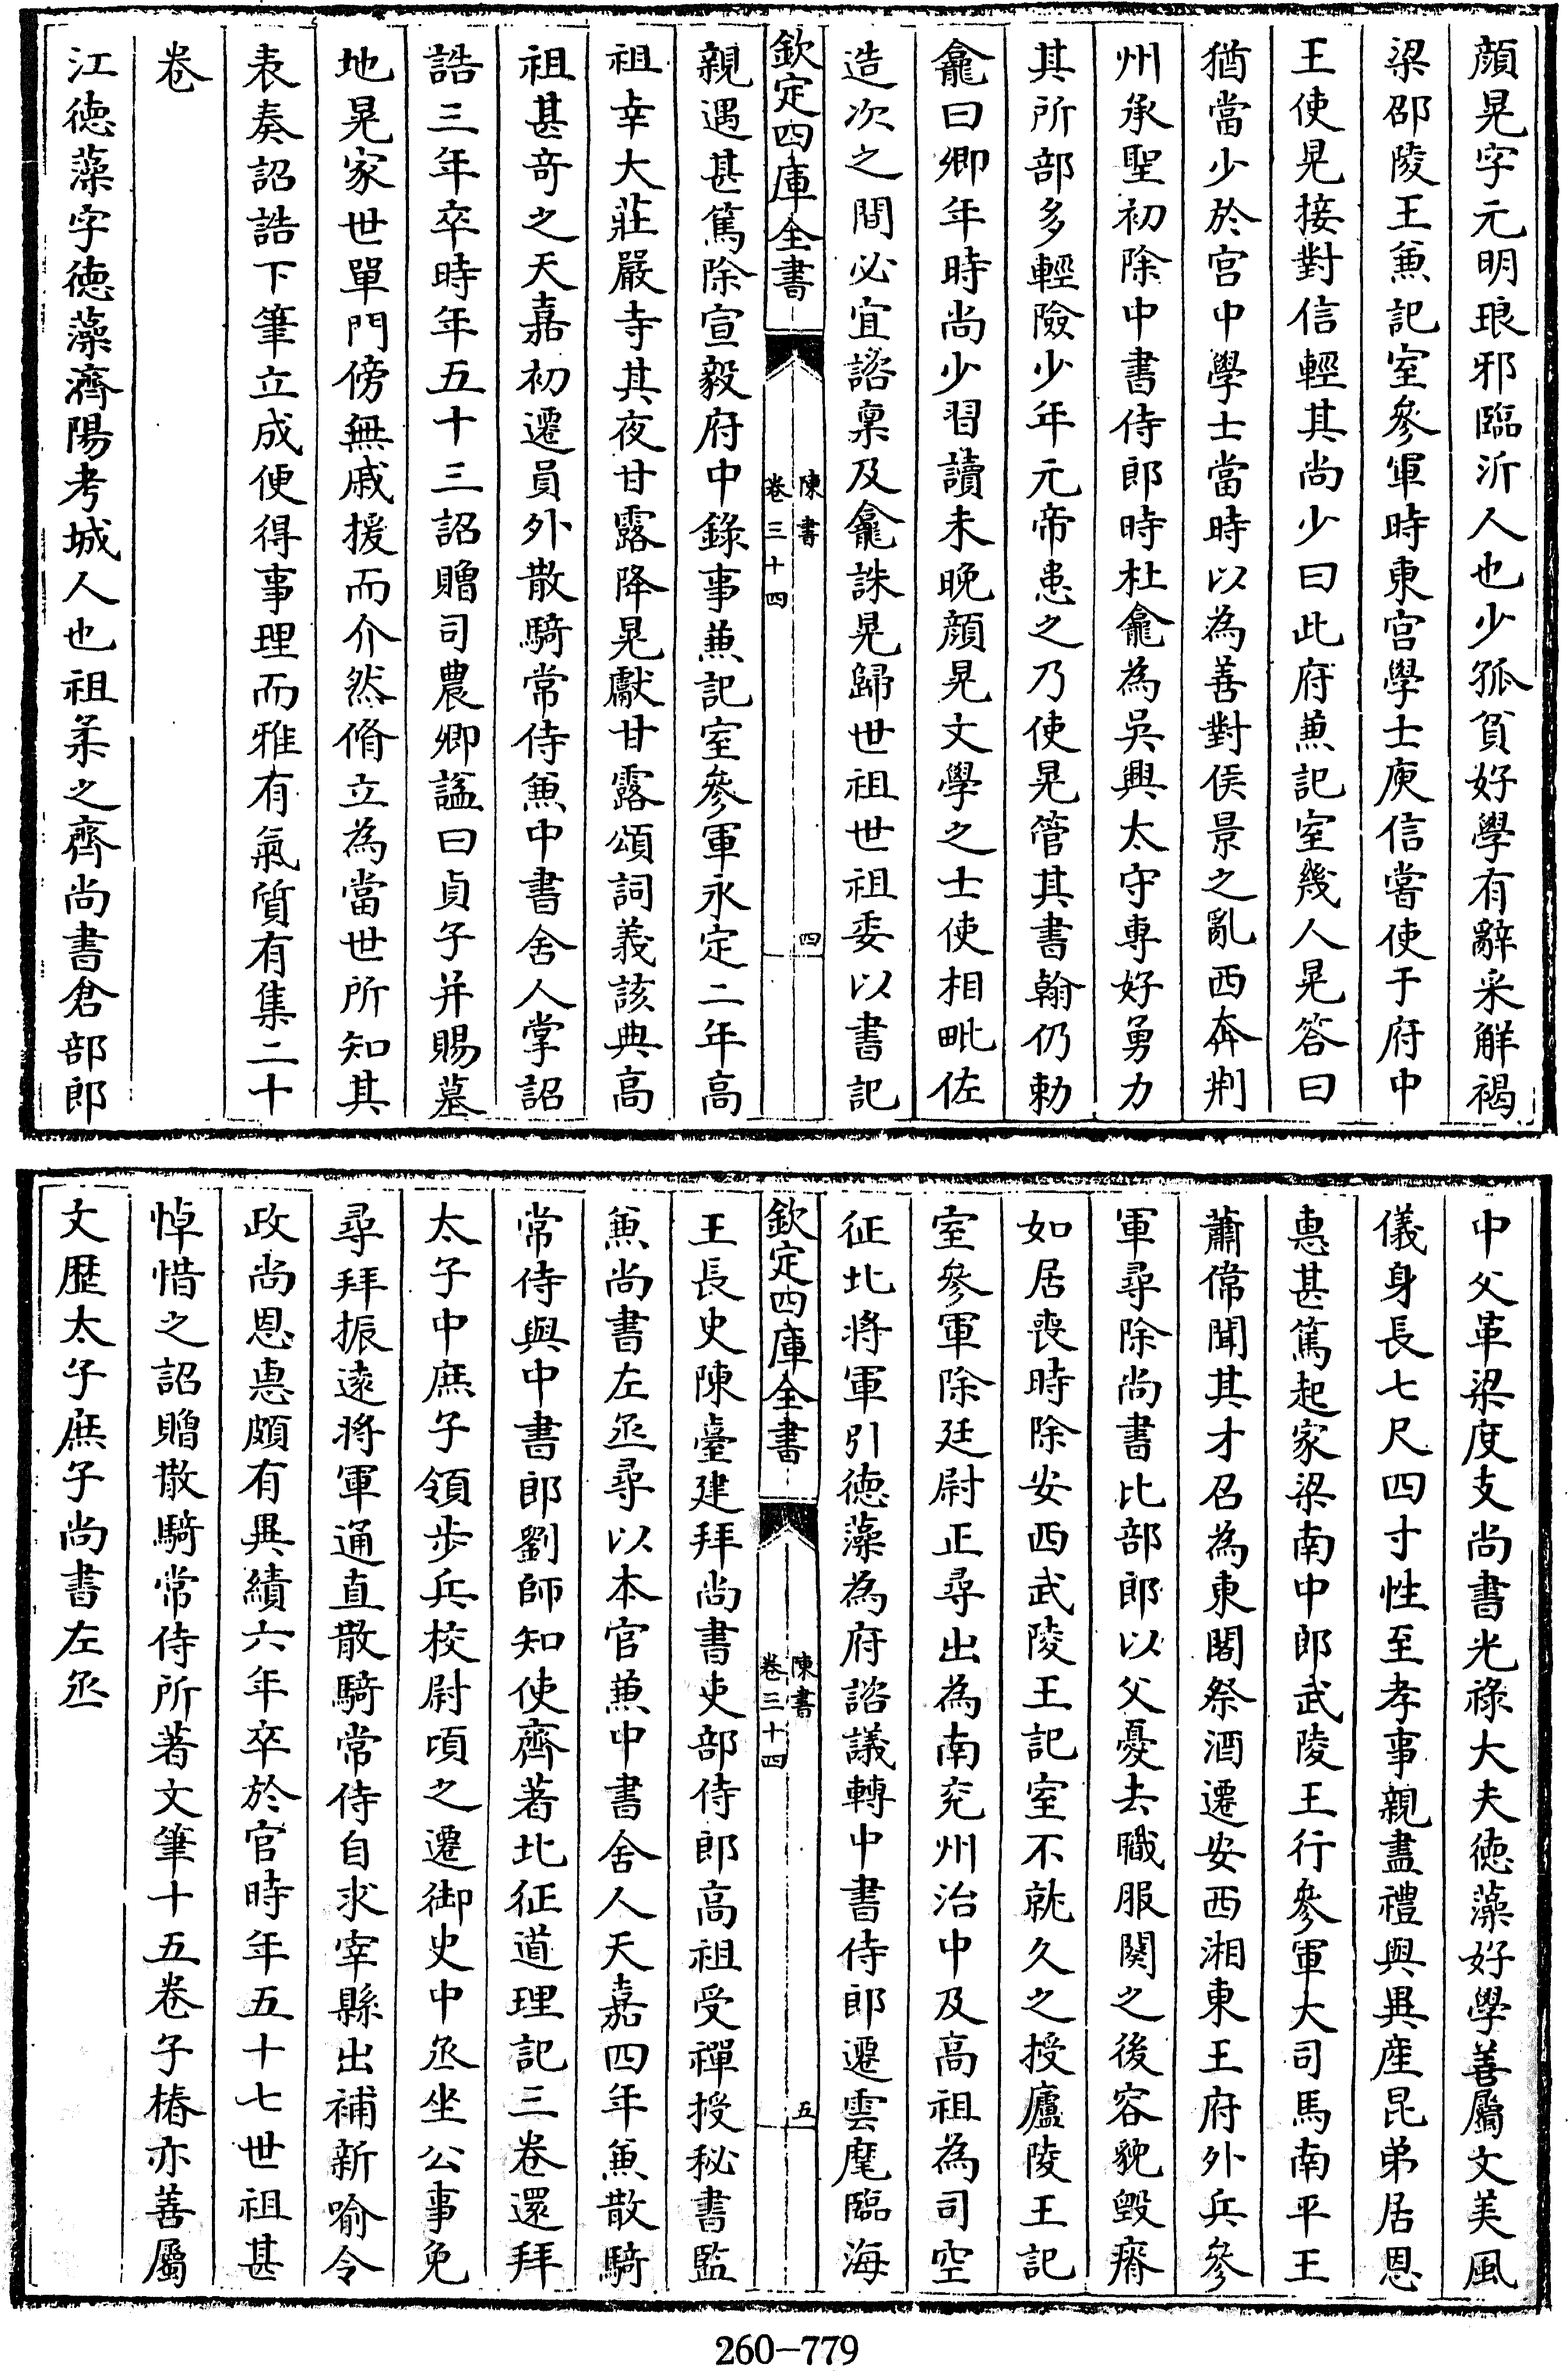 顔晃字元明琅邪臨沂人也少孤貧好學有辭采解褐
梁邵陵王兼記室參軍時東宮學士庾信嘗使于府中
王使晃接對信輕其尚少曰此府兼記室幾人晃答曰
猶當少於宮中學士當時以為善對侯景之亂西奔荆
州承聖初除中書侍郎時杜龕為吳興太守專好勇力
其所部多輕險少年元帝患之乃使晃管其書翰仍勅
龕曰卿年時尚少習讀未晚顔晃文學之士使相毗佐
造次之間必宜諮稟及龕誅晃歸世祖世祖委以書記
欽定四庫全書
陳書
卷三十四
四
親遇甚篤除宣毅府中錄事兼記室參軍永定二年高
祖幸大莊嚴寺其夜甘露降晃獻甘露頌詞義該典高
祖甚竒之天嘉初遷員外散騎常侍兼中書舍人掌詔
誥三年卒時年五十三詔贈司農卿諡曰貞子并賜墓
地晃家世單門傍無戚援而介然脩立為當世所知其
表奏詔誥下筆立成便得事理而雅有氣質有集二十
卷
江德藻字德藻濟陽考城人也祖柔之齊尚書倉部郎
中父革梁度支尚書光祿大夫德藻好學善屬文美風
儀身長七尺四寸性至孝事親盡禮與異産昆弟居恩
惠甚篤起家梁南中郎武陵王行參軍大司馬南平王
蕭偉聞其才召為東閤祭酒遷安西湘東王府外兵參
軍尋除尚書比部郎以父憂去職服闋之後容貌毀瘠
如居喪時除安西武陵王記室不就久之授廬陵王記
室參軍除廷尉正尋出為南兖州治中及高祖為司空
征北將軍引德藻為府諮議轉中書侍郎遷雲麾臨海
欽定四庫全書
陳書
卷三十四
五
王長史陳臺建拜尚書吏部侍郎高祖受禪授秘書監
兼尚書左丞尋以本官兼中書舍人天嘉四年兼散騎
常侍與中書郎劉師知使齊著北征道理記三卷還拜
太子中庶子領步兵校尉頃之遷御史中丞坐公事免
尋拜振遠將軍通直散騎常侍自求宰縣出補新喻令
政尚恩惠頗有異績六年卒於官時年五十七世祖甚
悼惜之詔贈散騎常侍所著文筆十五卷子椿亦善屬
文歷太子庶子尚書左丞
260-779